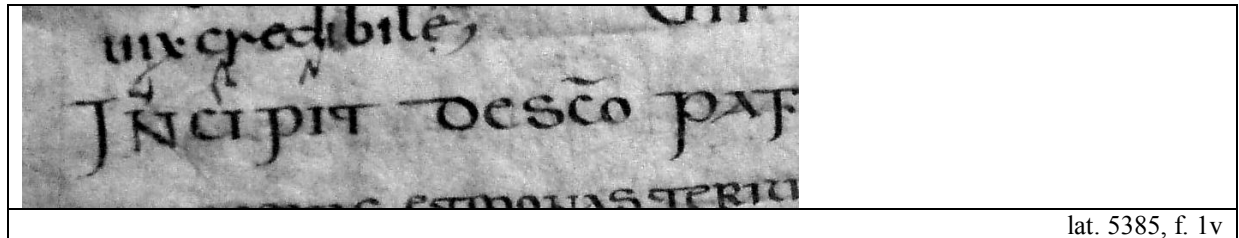 uix credibile,
INCIPIT DE SC̄O PAF
EST MONASTERIU
lat. 5385, f. 1v